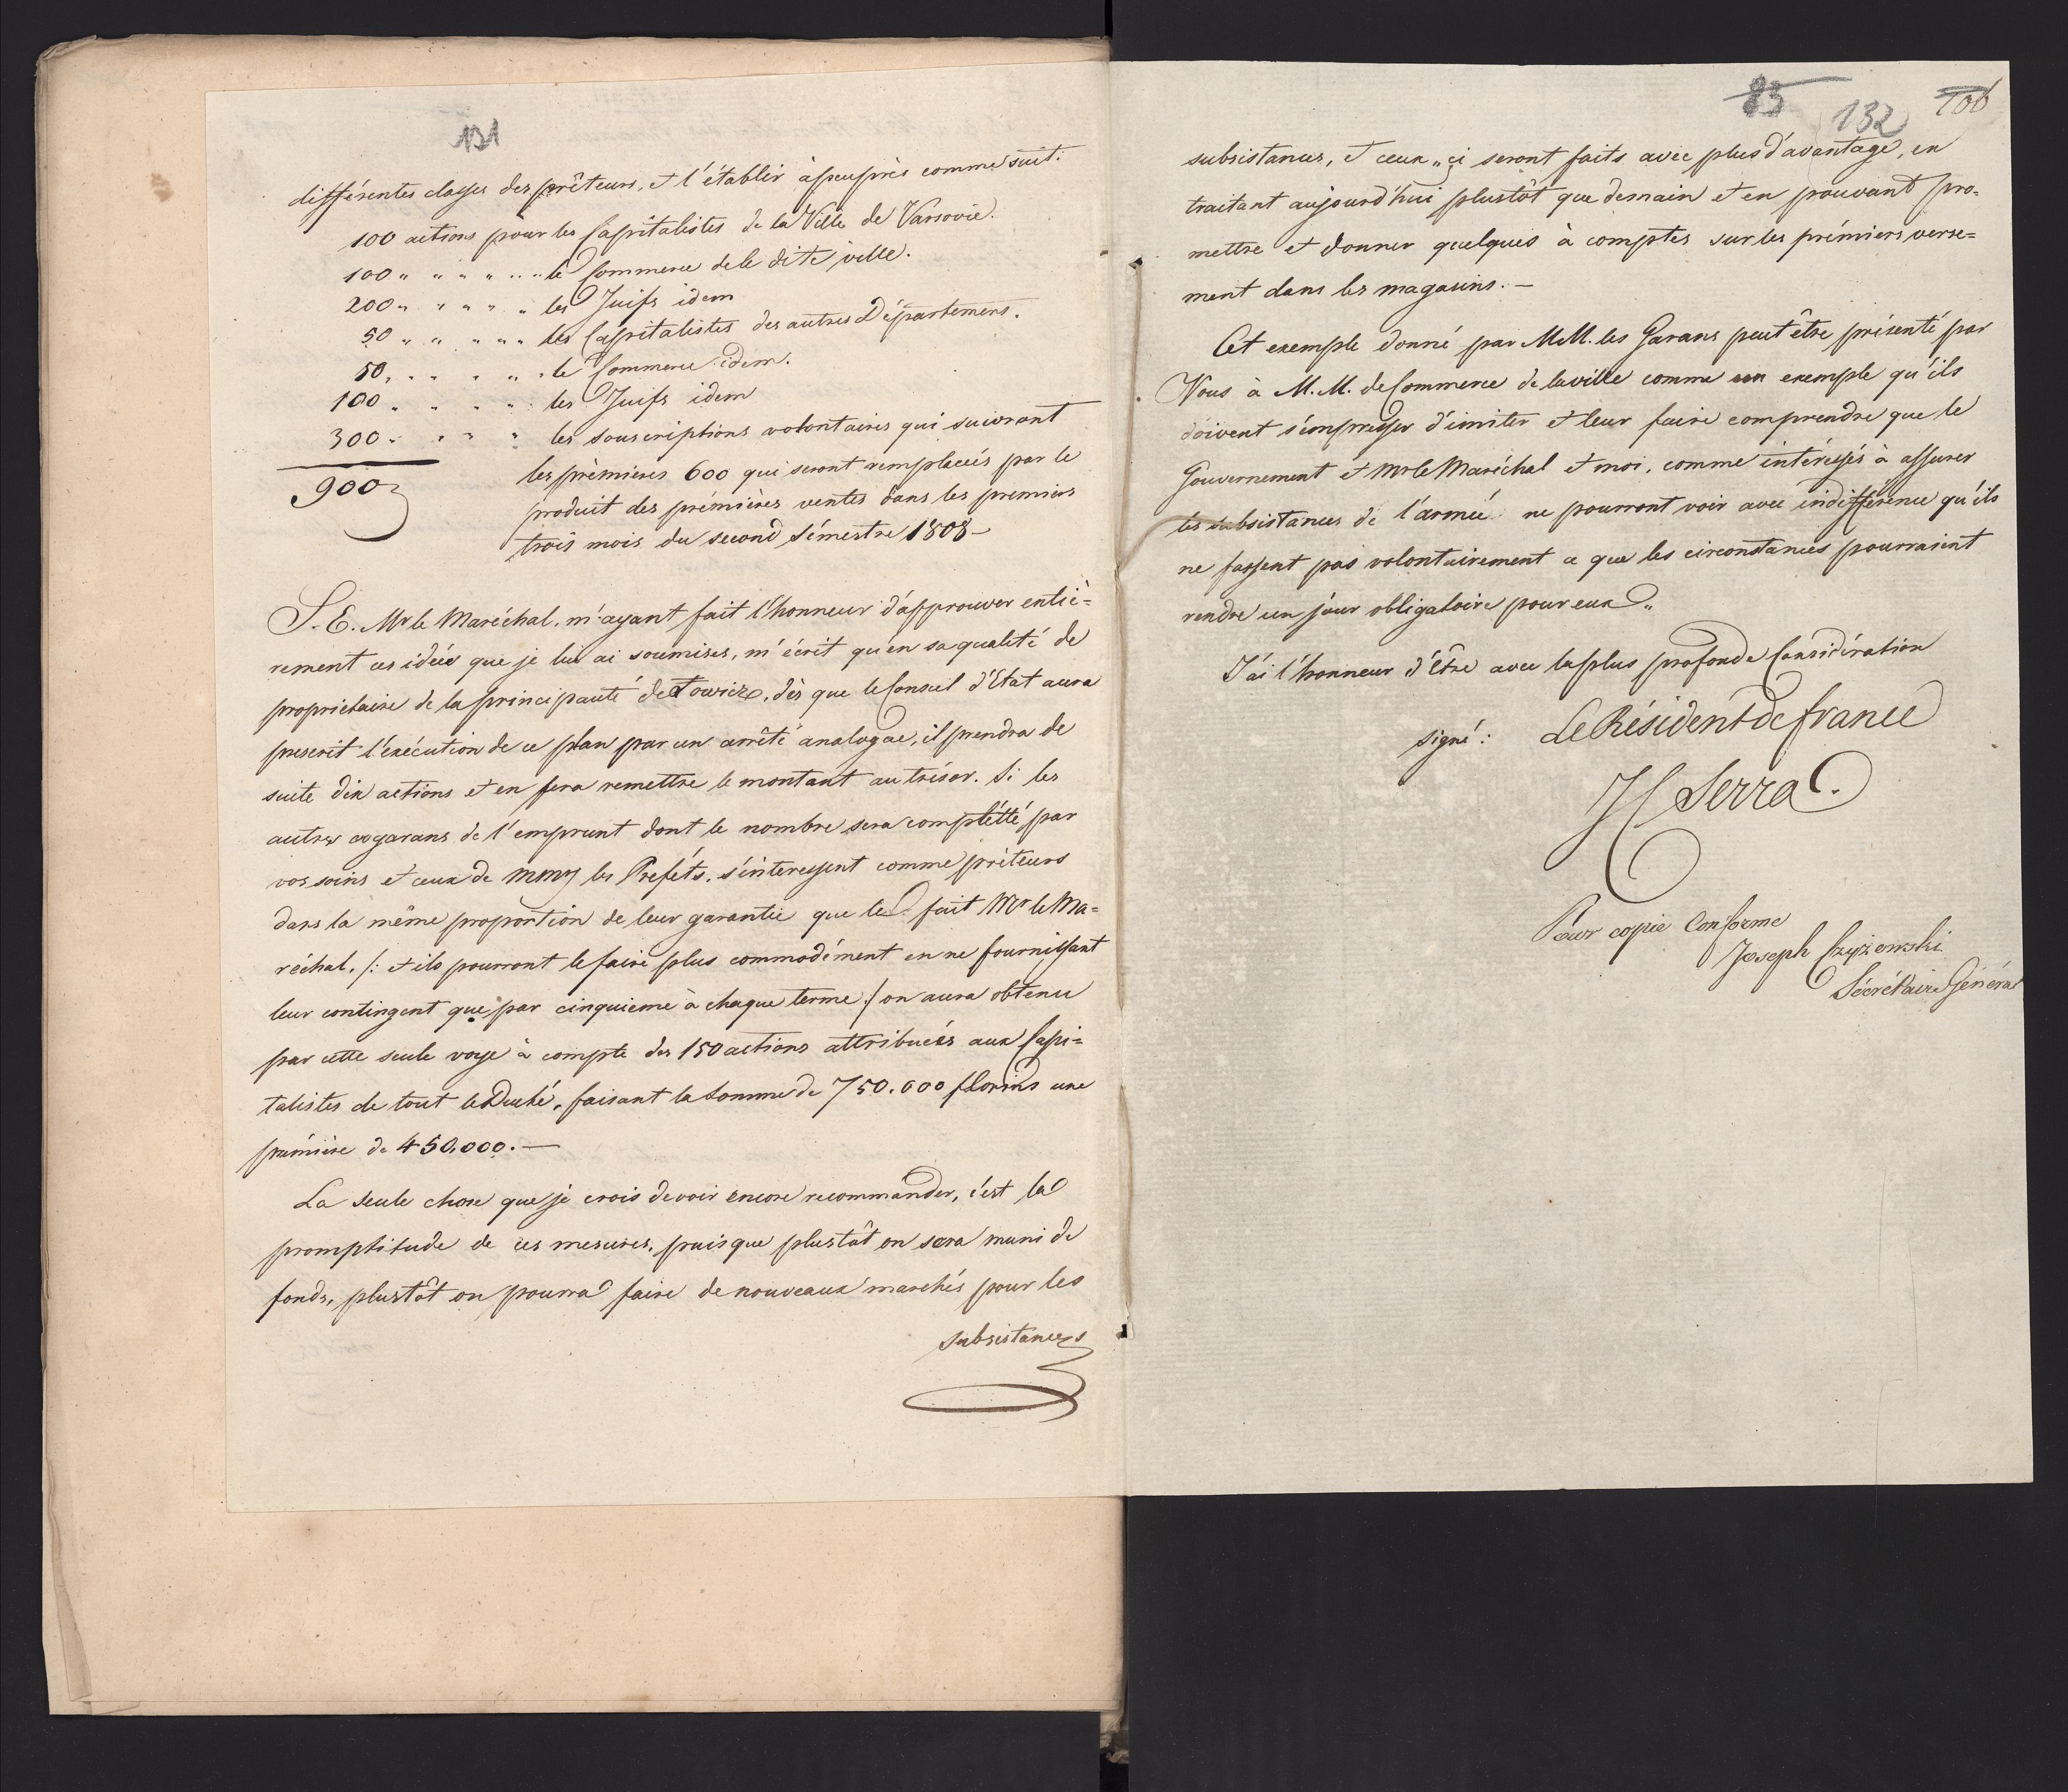 131
différentes classes des prêteurs, et l'établir àpeuprès comme suit:
100 actions pour les Capitalistes de la Ville de Varsovie.
100 " " " " " " le Commerce de le dite ville.
200 " " " " " les Juifs idem
50 " " " " " les Capitalistes des autres Départemens.
50 " " " " " le Commerce idem.
100 " " " " " les Juifs idem
300 " " " " les souscriptions volontaires qui suivront
900
les prémieres 600 qui seront remplacées par le
produit des prémières ventes dans les premiers
trois mois du second Sémestre 1808 —
S. E. Mr le Maréchal, m'ayant fait l'honneur d'approuver entiè=
rement ces idées que je lui ai soumises, m'écrit qu'en sa qualité de
propriétaire de la principauté de Łowicz, dès que le Conseil d'Etat aura
prescrit l'exécution de ce plan par un arrêté analogue, il prendra de
suite dix actions et en fera remettre le montant au trésor. Si les
autres cogarans de l'emprunt dont le nombre sera complétté par
vos soins et ceux de MM les Prefèts, s'interessent comme prèteurs
dans la même proportion de leur garantie que le fait Mr le Ma=
réchal, /: et ils pourront le faire plus commodément en ne fournissant
leur contingent que par cinquieme à chaque terme :/ on aura obtenu
par cette seule voye à compte des 150 actions attribuées aux Capi=
talistes de tout le Duché, faisant la Somme de 750.000 florins une
prémière de 450.000. —
La seule chose que je crois devoir encore recommander, c'est la
promptitude de ces mesures, puisque plustôt on sera muni de
fonds, plustôt on pourra faire de nouveaux marchés pour les
subsistances
83 132 106
subsistances, et ceux "ci seront faits avec plus d'avantage, en
traitant aujourd'hui plustôt que demain et en pouvant pro=
mettre et donner quelques à comptes sur les prémiers verse=
ment dans les magasins. —
Cet exemple donné par M.M. les Garans peut être présenté par
Vous à M.M. de Commerce de la ville comme un exemple qu'ils
doivent s'empresser d'imiter et leur faire comprendre que le
Gouvernement et Mr le Maréchal et moi, comme intéressés à assurer
les subsistances de l'armée ne pourront voir avec indifférence qu'ils
ne fassent pas volontairement ce que les circonstances pourraient
rendre un jour obligatoire pour eux "
J'ai l'honneur d'être avec la plus profonde Considération
signé: Le Résident de france
Serra.
Pour copie Conforme
Joseph Czyżewski
Sécrétaire Général